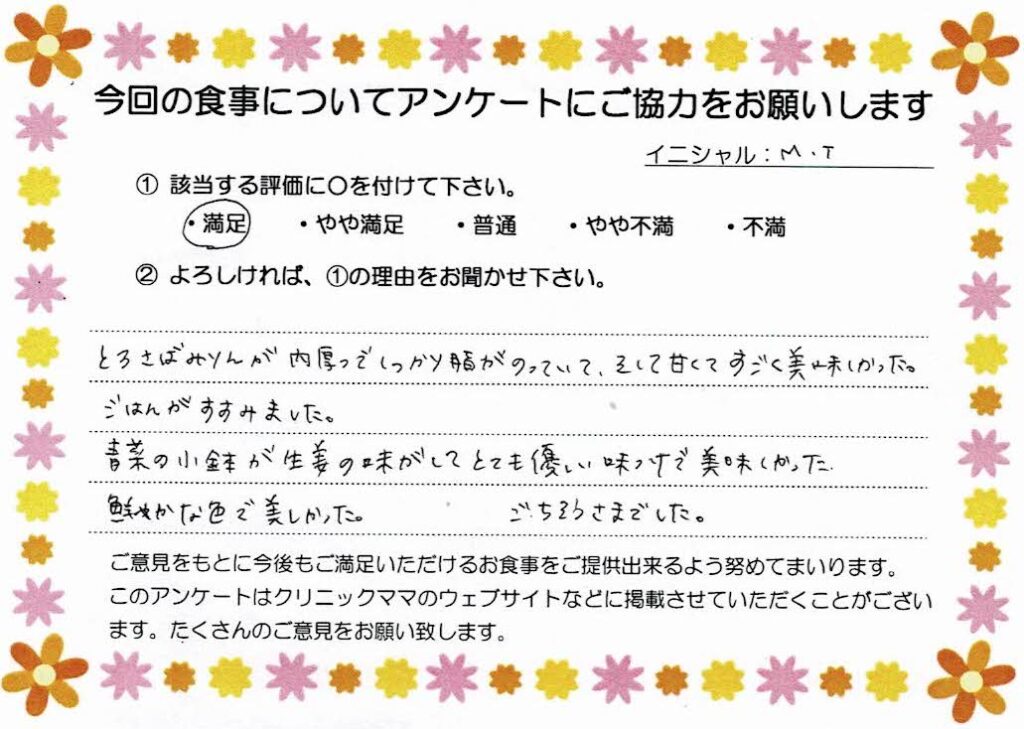 今回の食事についてアンケートにご協力をお願いします
イニシャル：M.T
① 該当する評価に〇を付けて下さい。
・満足 ・やや満足 ・普通 ・やや不満 ・不満
② よろしければ、①の理由をお聞かせ下さい。
とろさばみりんが肉厚でしっかり脂がのっていて、そして甘くてすごく美味しかった。
ごはんがすすみました。
青菜の小鉢が生姜の味がしてとても優しい味つけで美味しかった
鮮やかな色で美しかった。 ごちそうさまでした。
ご意見をもとに今後もご満足いただけるお食事をご提供出来るよう努めてまいります。
このアンケートはクリニックママのウェブサイトなどに掲載させていただくことがござい
ます。たくさんのご意見をお願い致します。